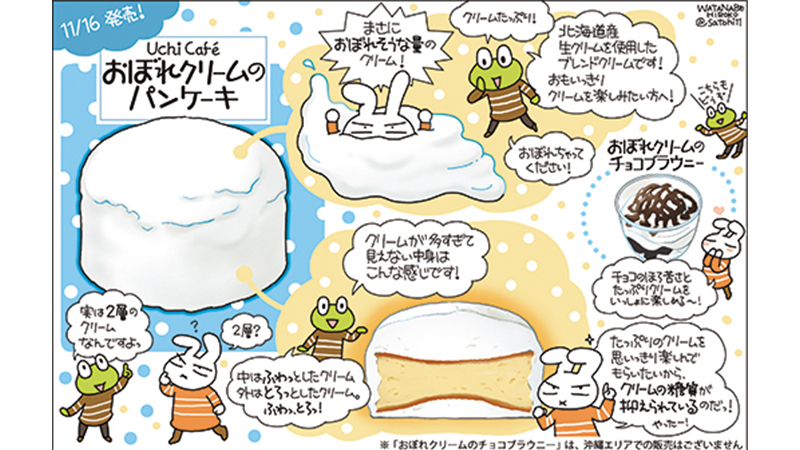 11/16 発売!
WATANABE
HIROKO
@SATOHI11
Uchi Café
おぼれクリームの
パンケーキ
まさに
おぼれそうな量の
クリーム!
クリームたっぷり!
北海道産
生クリームを使用した
ブレンドクリームです!
おもいっきり
クリームを楽しみたい方へ!
こちらも
どうぞ
おぼれちゃって
ください!
おぼれクリームの
チョコブラウニー
クリームが多すぎて
見えない中身は
こんな感じです!
チョコのほろ苦さと
たっぷりクリームを
いっしょに楽しめる〜!
実は2層の
クリーム
なんですよっ
?
2層?
中はふわっとしたクリーム
外はとろっとしたクリーム。
ふわっ、とろっ!
たっぷりのクリームを
思いっきり楽しんで
もらいたいから、
クリームの糖質が
抑えられているのだっ!
やったー!
※「おぼれクリームのチョコブラウニー」は、沖縄エリアでの販売はございません